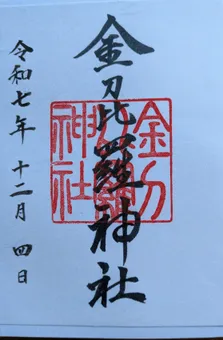 金刀比羅神社
令和七年 十二月 四日
金刀比羅神社